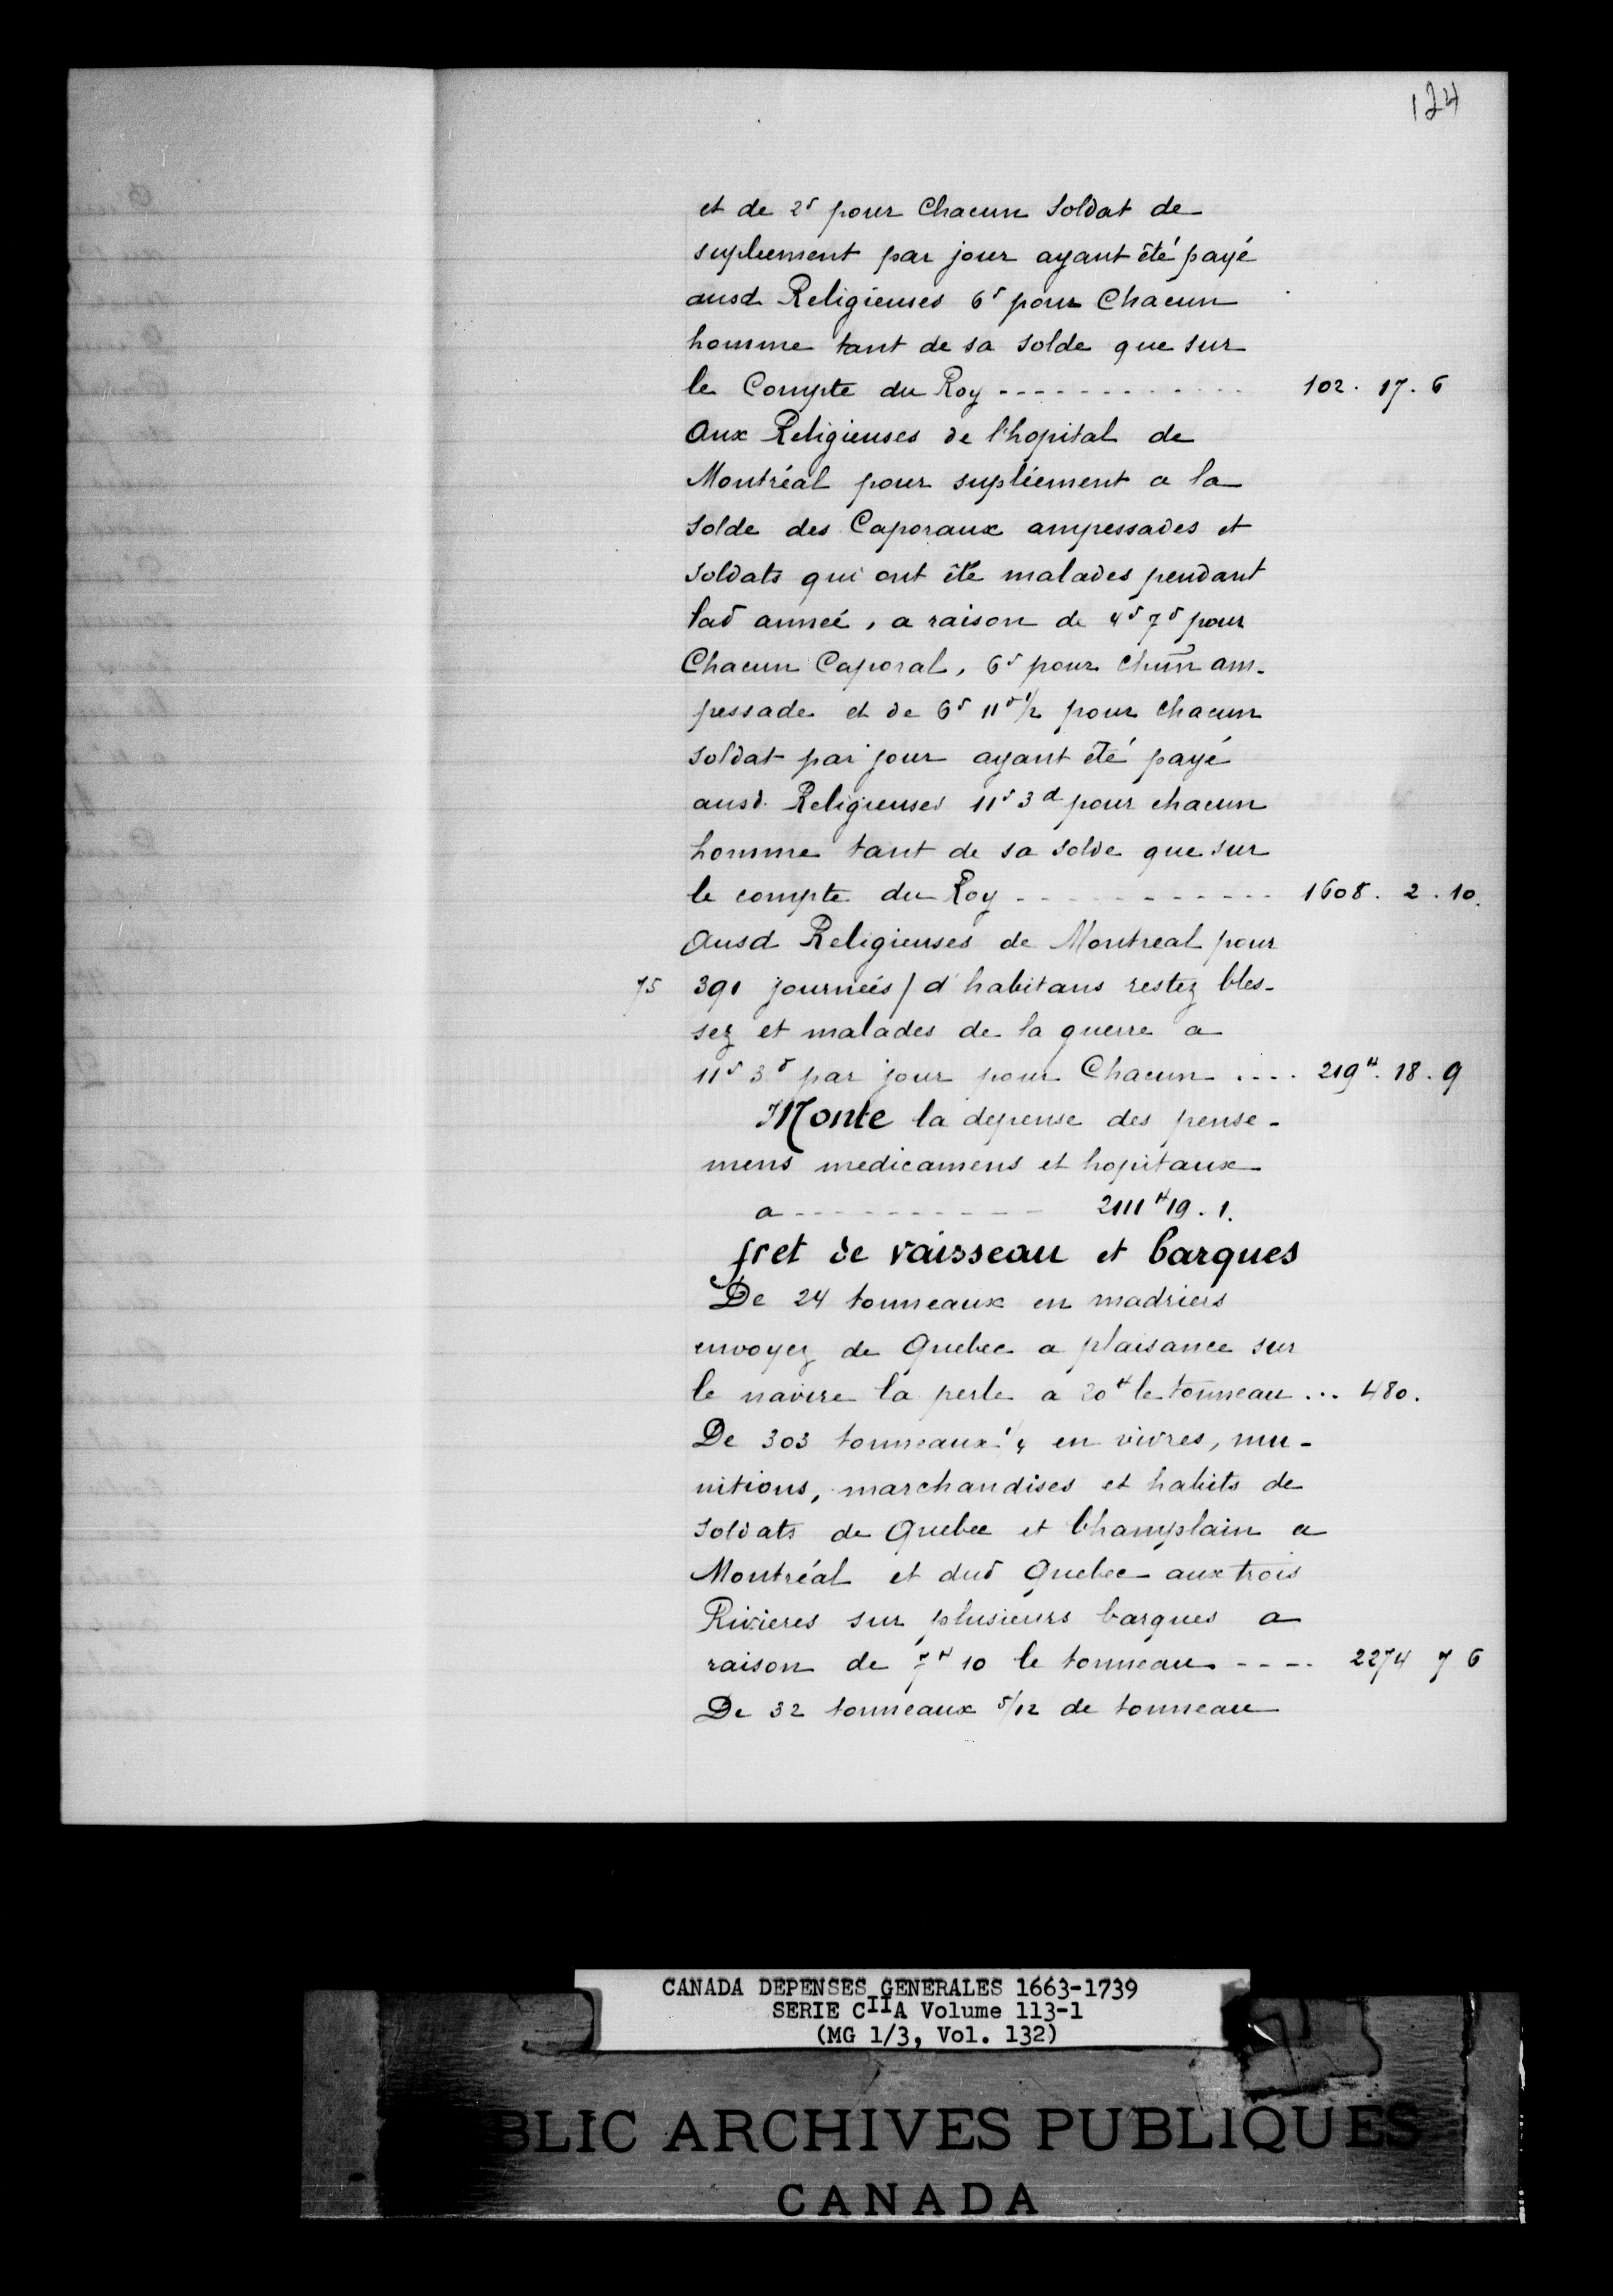 124
et de 2s pour Chacun Soldat de
supleement par jour ayant été payé
ausd Religieuses 6s pour Chacun
homme tant de sa solde que sur
le Compte du Roy ------------ 102. 17. 6
Aux Religieuses de l'hopital de
Montréal pour supléement a la
Solde des Caporaux ampessades et
soldats qui ont été malades pendant
lad anneé, a raison de 4s 7d pour
Chacun Caporal, 6s pour chun am-
pessade et de 6s 11d 1/2 pour chacun
soldat par jour ayant été payé
ausd. Religieuses 11s 3d pour chacun
homme tant de sa solde que sur
le compte du Roy ------------ 1608. 2. 10.
Ausd Religieuses de Montreal pour
75 391 journeés / d'habitans restez bles-
sez et malades de la guerre a
11s 3d par jour pour Chacun .... 219tt. 18. 9
Monte la depense des pense-
mens medicamens et hopitaux
a ---------- 2111tt 19. 1.
fret de vaisseau et barques
De 24 tonneaux en madriers
envoyez de Quebec a plaisance sur
le navire la perle a 20tt le tonneau ... 480.
De 303 tonneaux 1/4 en vivres, mu-
nitions, marchandises et habits de
Soldats de Quebec et Champlain a
Montréal et dud Quebec aux trois
Rivieres sur plusieurs barques a
raison de 7tt 10 le tonneau ---- 2274 7 6
De 32 tonneaux 5/12 de tonneau
CANADA DEPENSES GENERALES 1663-1739
SERIE CIIA Volume 113-1
(MG 1/3, Vol. 132)
BLIC ARCHIVES PUBLIQUES
CANADA